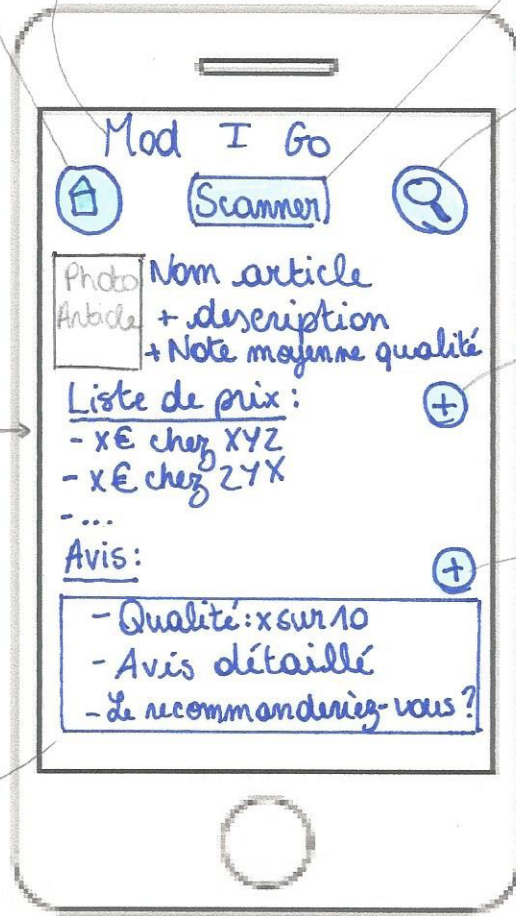 Mod I Go
Scanner
Photo
Article
Nom article
+ description
+ Note moyenne qualité
Liste de prix :
+
- x€ chez XYZ
- x€ chez ZYX
- ...
Avis :
+
- Qualité : x sur 10
- Avis détaillé
- Le recommanderiez-vous ?